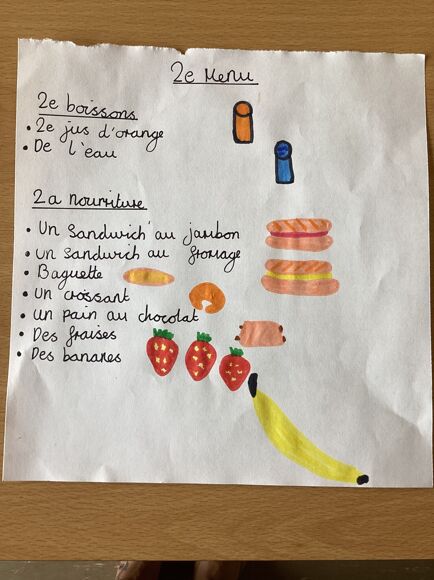 Le Menu
Le boissons
• Le jus d'orange
• De l'eau
La nourriture
• un sandwich au jambon
• un sandwich au fromage
• Baguette
• un croissant
• un pain au chocolat
• Des fraises
• Des bananes